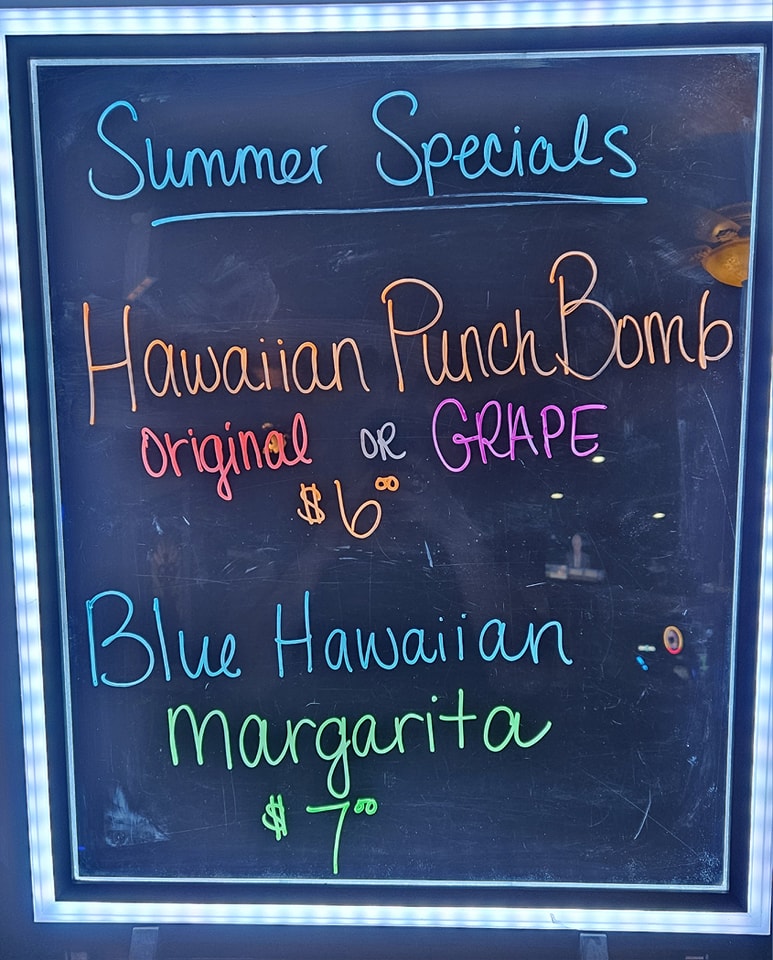 Summer Specials
Hawaiian Punch Bomb
original OR GRAPE
$6⁰⁰
Blue Hawaiian
margarita
$7⁰⁰